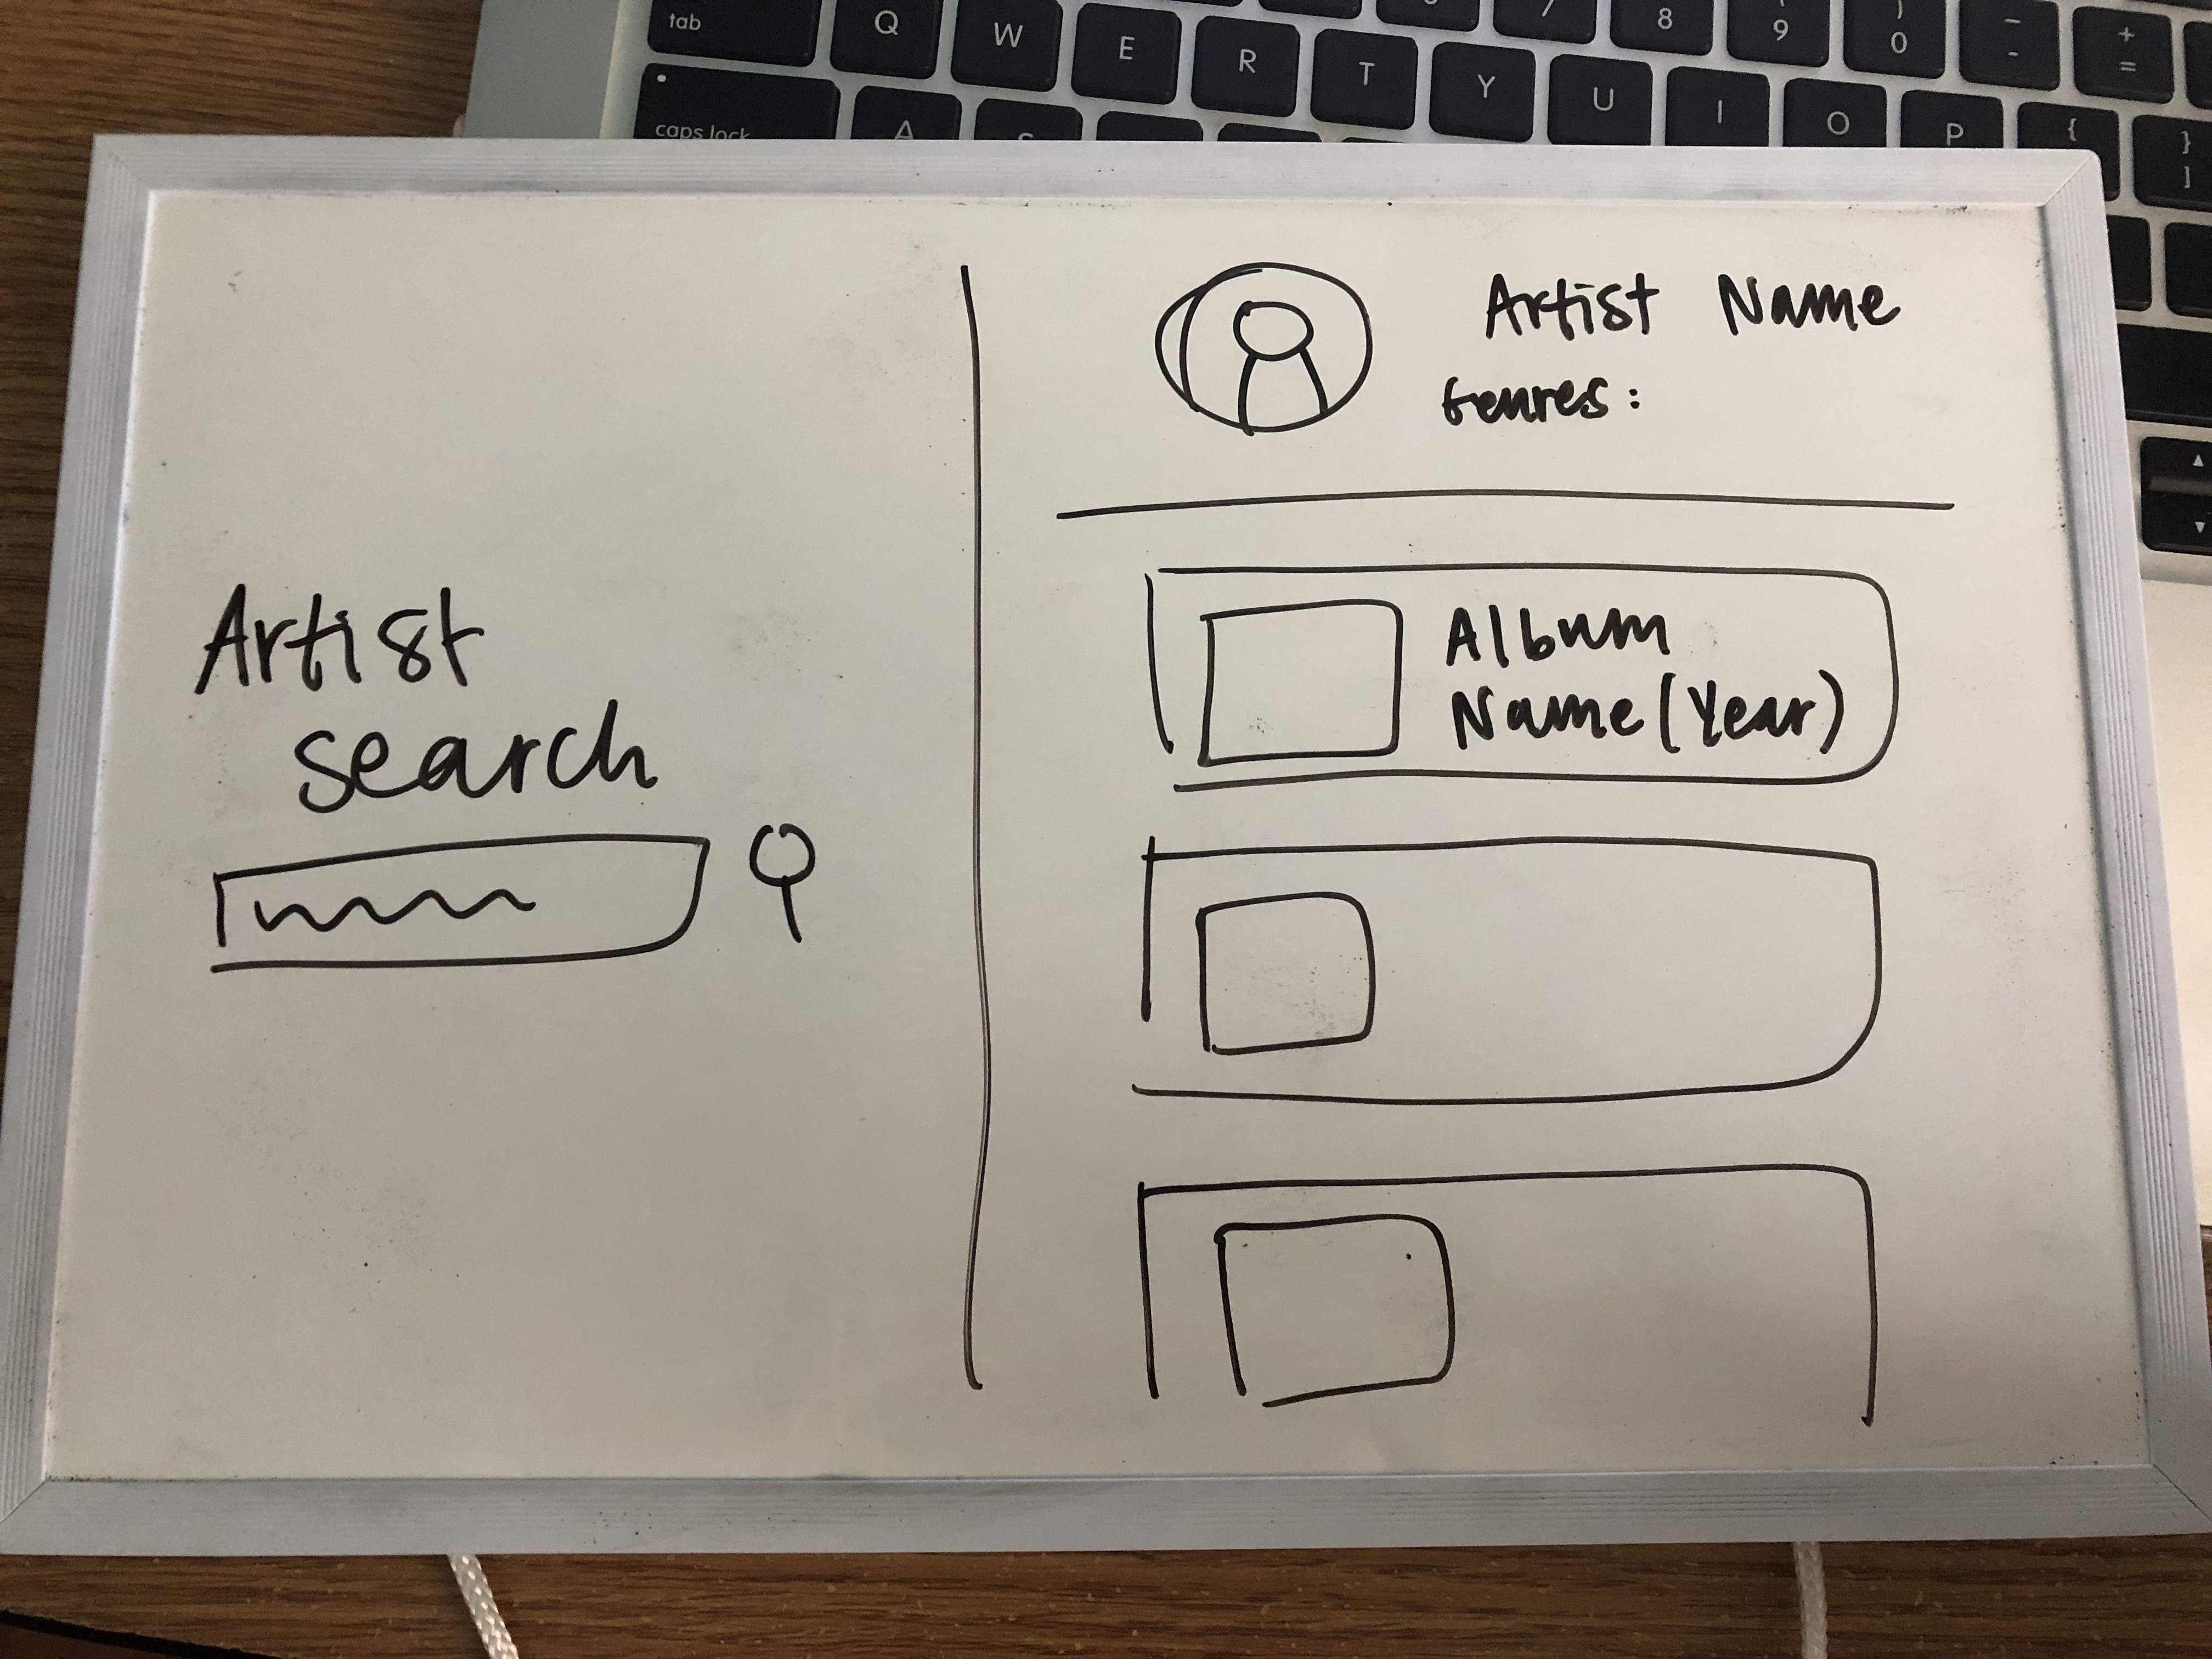 tab
Q
W
E
R
T
Y
U
I
O
P
7
8
9
)
0
-
+
=
{
}
]
caps lock
A
S
Artist
search
Artist Name
Genres:
Album
Name (Year)